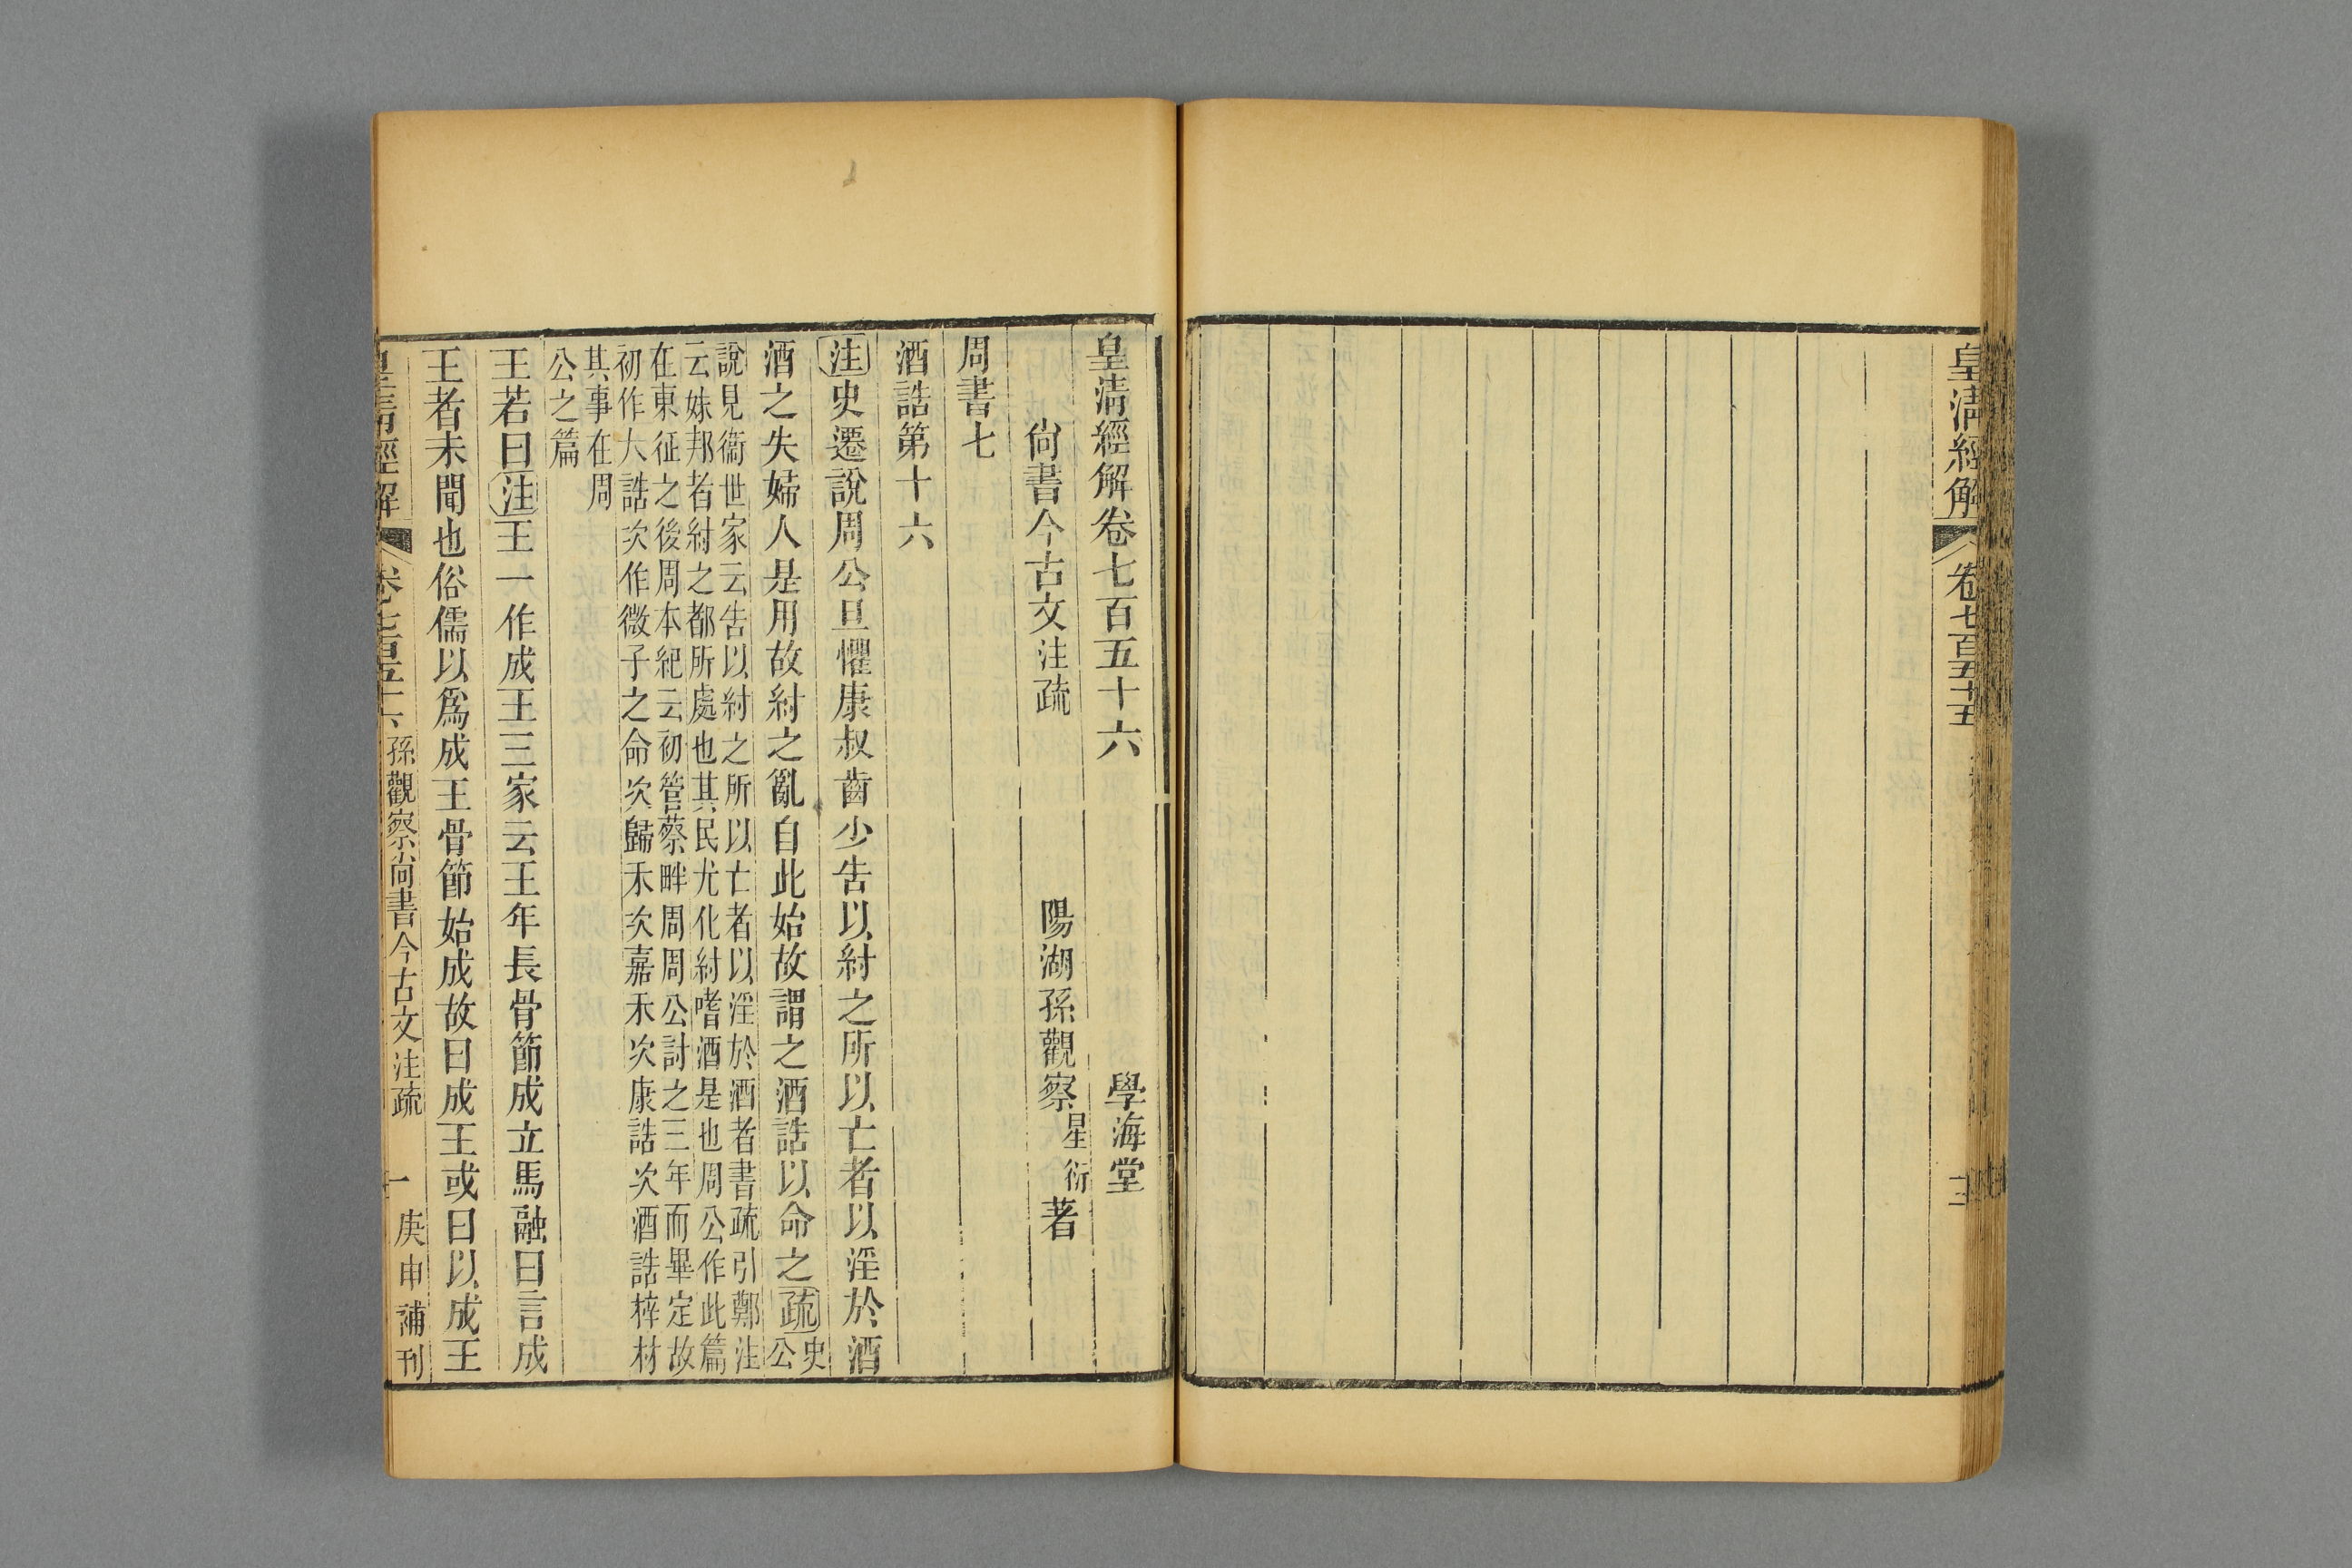 皇清經解
卷七百五十五
皇清經解卷七百五十六
學海堂
尚書今古文注疏
陽湖孫觀察星衍著
周書七
酒誥第十六
注史遷說周公旦懼康叔齒少告以紂之所以亡者以淫於酒
酒之失婦人是用故紂之亂自此始故謂之酒誥以命之疏史
公
說見衞世家云告以紂之所以亡者以淫於酒者書疏引鄭注
云妹邦者紂之都所處也其民尤化紂嗜酒是也周公作此篇
在東征之後周本紀云初管蔡畔周周公討之三年而畢定故
初作大誥次作微子之命次歸禾次嘉禾次康誥次酒誥梓材
其事在周
公之篇
王若曰注王一作成王三家云王年長骨節成立馬融曰言成
王者未聞也俗儒以爲成王骨節始成故曰成王或曰以成王
皇清經解
卷七百五十六
孫觀察尚書今古文注疏
一
庚申補刊